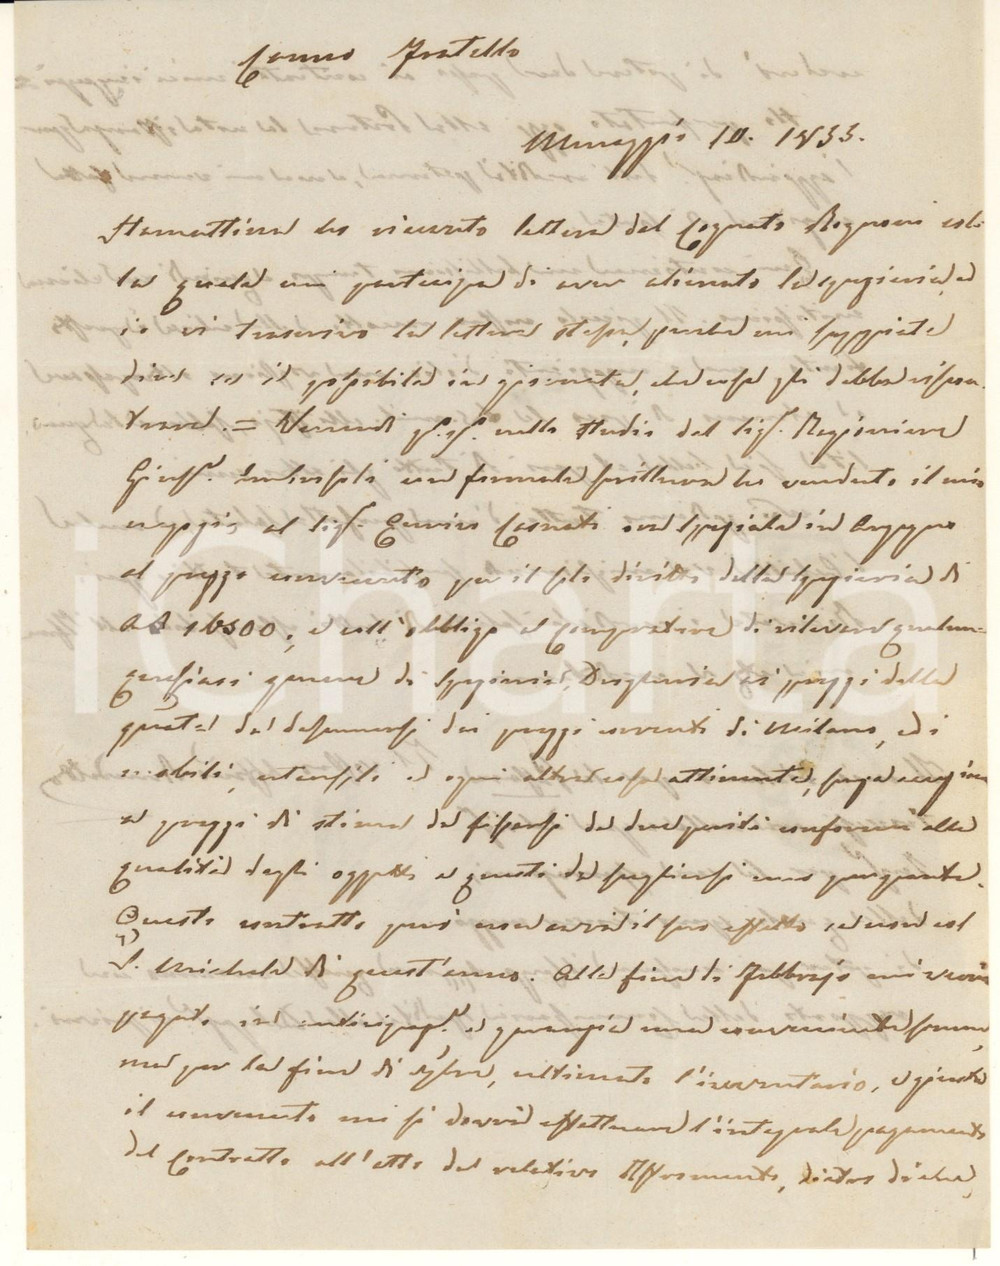 Car.mo Fratello
Menaggio 10. 1833.
Stamattina ho ricevuto lettera dal Cognato Rognoni col-
la quale mi partecipa di aver alienato la speziaria, ed
io vi trascrivo la lettera stessa, perchè mi sappiate
dire se è possibile in giornata, che cosa gli debba rispon-
dere. = Venerdì p.º p.º nello studio del Sig.r Ragioniere
Gius.e con formale scrittura ho venduto il mio
negozio al Sig.r Enrico Casnati ora speziale in Argegno
al prezzo convenuto per il solo diritto della Speziaria di
A£ 16500, e coll'obbligo al Compratore di rilevare qualun-
quesiasi genere di Spezieria, Drogheria ai prezzi della
da desumersi dai prezzi correnti di Milano, ed i
mobili, utensili ed ogni altra cosa attinente,
a prezzi di stima da fissarsi da due periti conformi alla
qualità degli oggetti e questi da scegliersi uno per parte.
Questo contratto però non avrà il suo effetto se non col
S. Michele di quest'anno. Alla fine di Febbrajo mi verrà
pagato in anticipaz.e e garanzia una conveniente somma,
ma per la fine di 7bre, ultimato l'inventario, e giusta
il convenuto mi si dovrà effettuare l'integrale pagamento
del Contratto all'atto del relativo Istromento, dietro di che,
iCharta